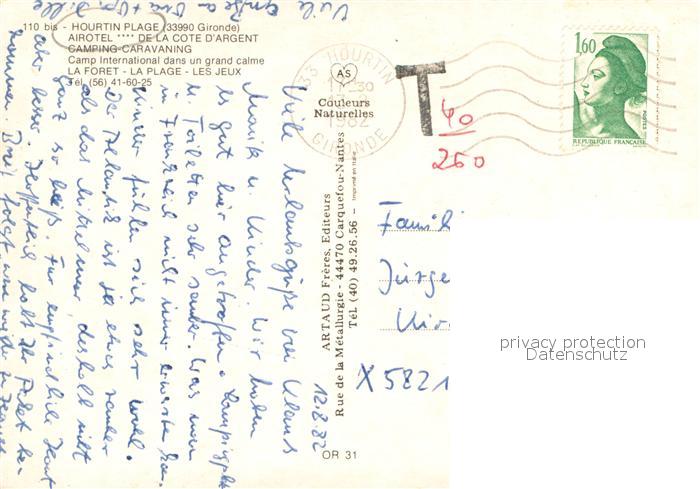 110 bis - HOURTIN PLAGE (33990 Gironde)
AIROTEL **** DE LA COTE D'ARGENT
CAMPING-CARAVANING
Camp International dans un grand calme
LA FORET - LA PLAGE - LES JEUX
Tél. (56) 41-60-25
33 HOURTIN
1982
GIRONDE
AS
Couleurs
Naturelles
T
40
260
1,60
REPUBLIQUE FRANÇAISE
POSTES
ARTAUD Frères, Editeurs
Rue de la Métallurgie - 44470 Carquefou-Nantes
Tél (40) 49.26.56 - Imprimé en Italie
12.8.82
Viele Urlaubsgrüße von Klaus
Monika u. Kinder. Wir haben
es gut hier angetroffen. Campingpl.
u. Toiletten sehr sauber. Was man
in Frankreich nicht immer erwarten kann.
Kinder fühlen sich sehr wohl.
Der Atlantik ist ja etwas rauher
als das Mittelmeer, deshalb nicht
ganz so heiß. Für empfindliche Haut
aber besser. Hoffentlich habt Ihr
Viele
Grüße an
Famili
Jürge
X5821
OR 31
privacy protection
Datenschutz